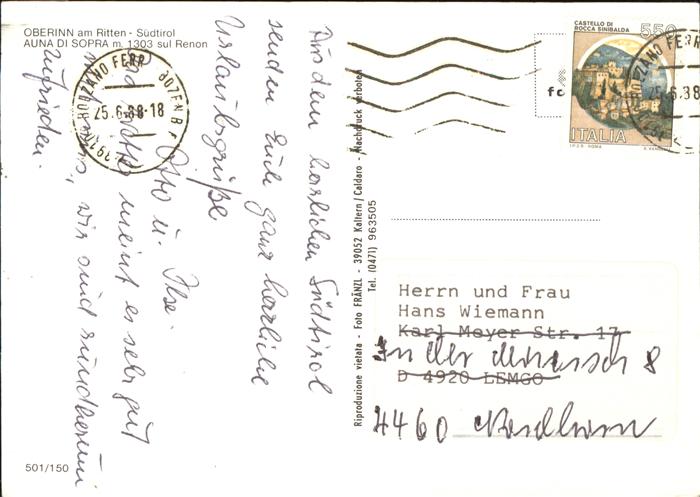 OBERINN am Ritten - Südtirol
AUNA DI SOPRA m. 1303 sul Renon
Aus dem herzlichen Südtirol
senden Euch ganz herzliche
Urlaubsgrüße
Otto u. Ilse.
Petrus meint es sehr gut
mit uns, wir sind rundherum
zufrieden.
501/150
Riproduzione vietata - Foto FRÄNZL - 39052 Kaltern/Caldaro - Nachdruck verboten
Tel. (0471) 963505
CASTELLO DI
ROCCA SINIBALDA
550
ITALIA
I.P.Z.S. ROMA
BOLZANO FERR
BOZEN B
25.6.88-18
39100
BOLZANO FERR
25.6.88
Herrn und Frau
Hans Wiemann
Karl Meyer Str. 17
In der 8
D 4920 LEMGO
4460 Nordhorn